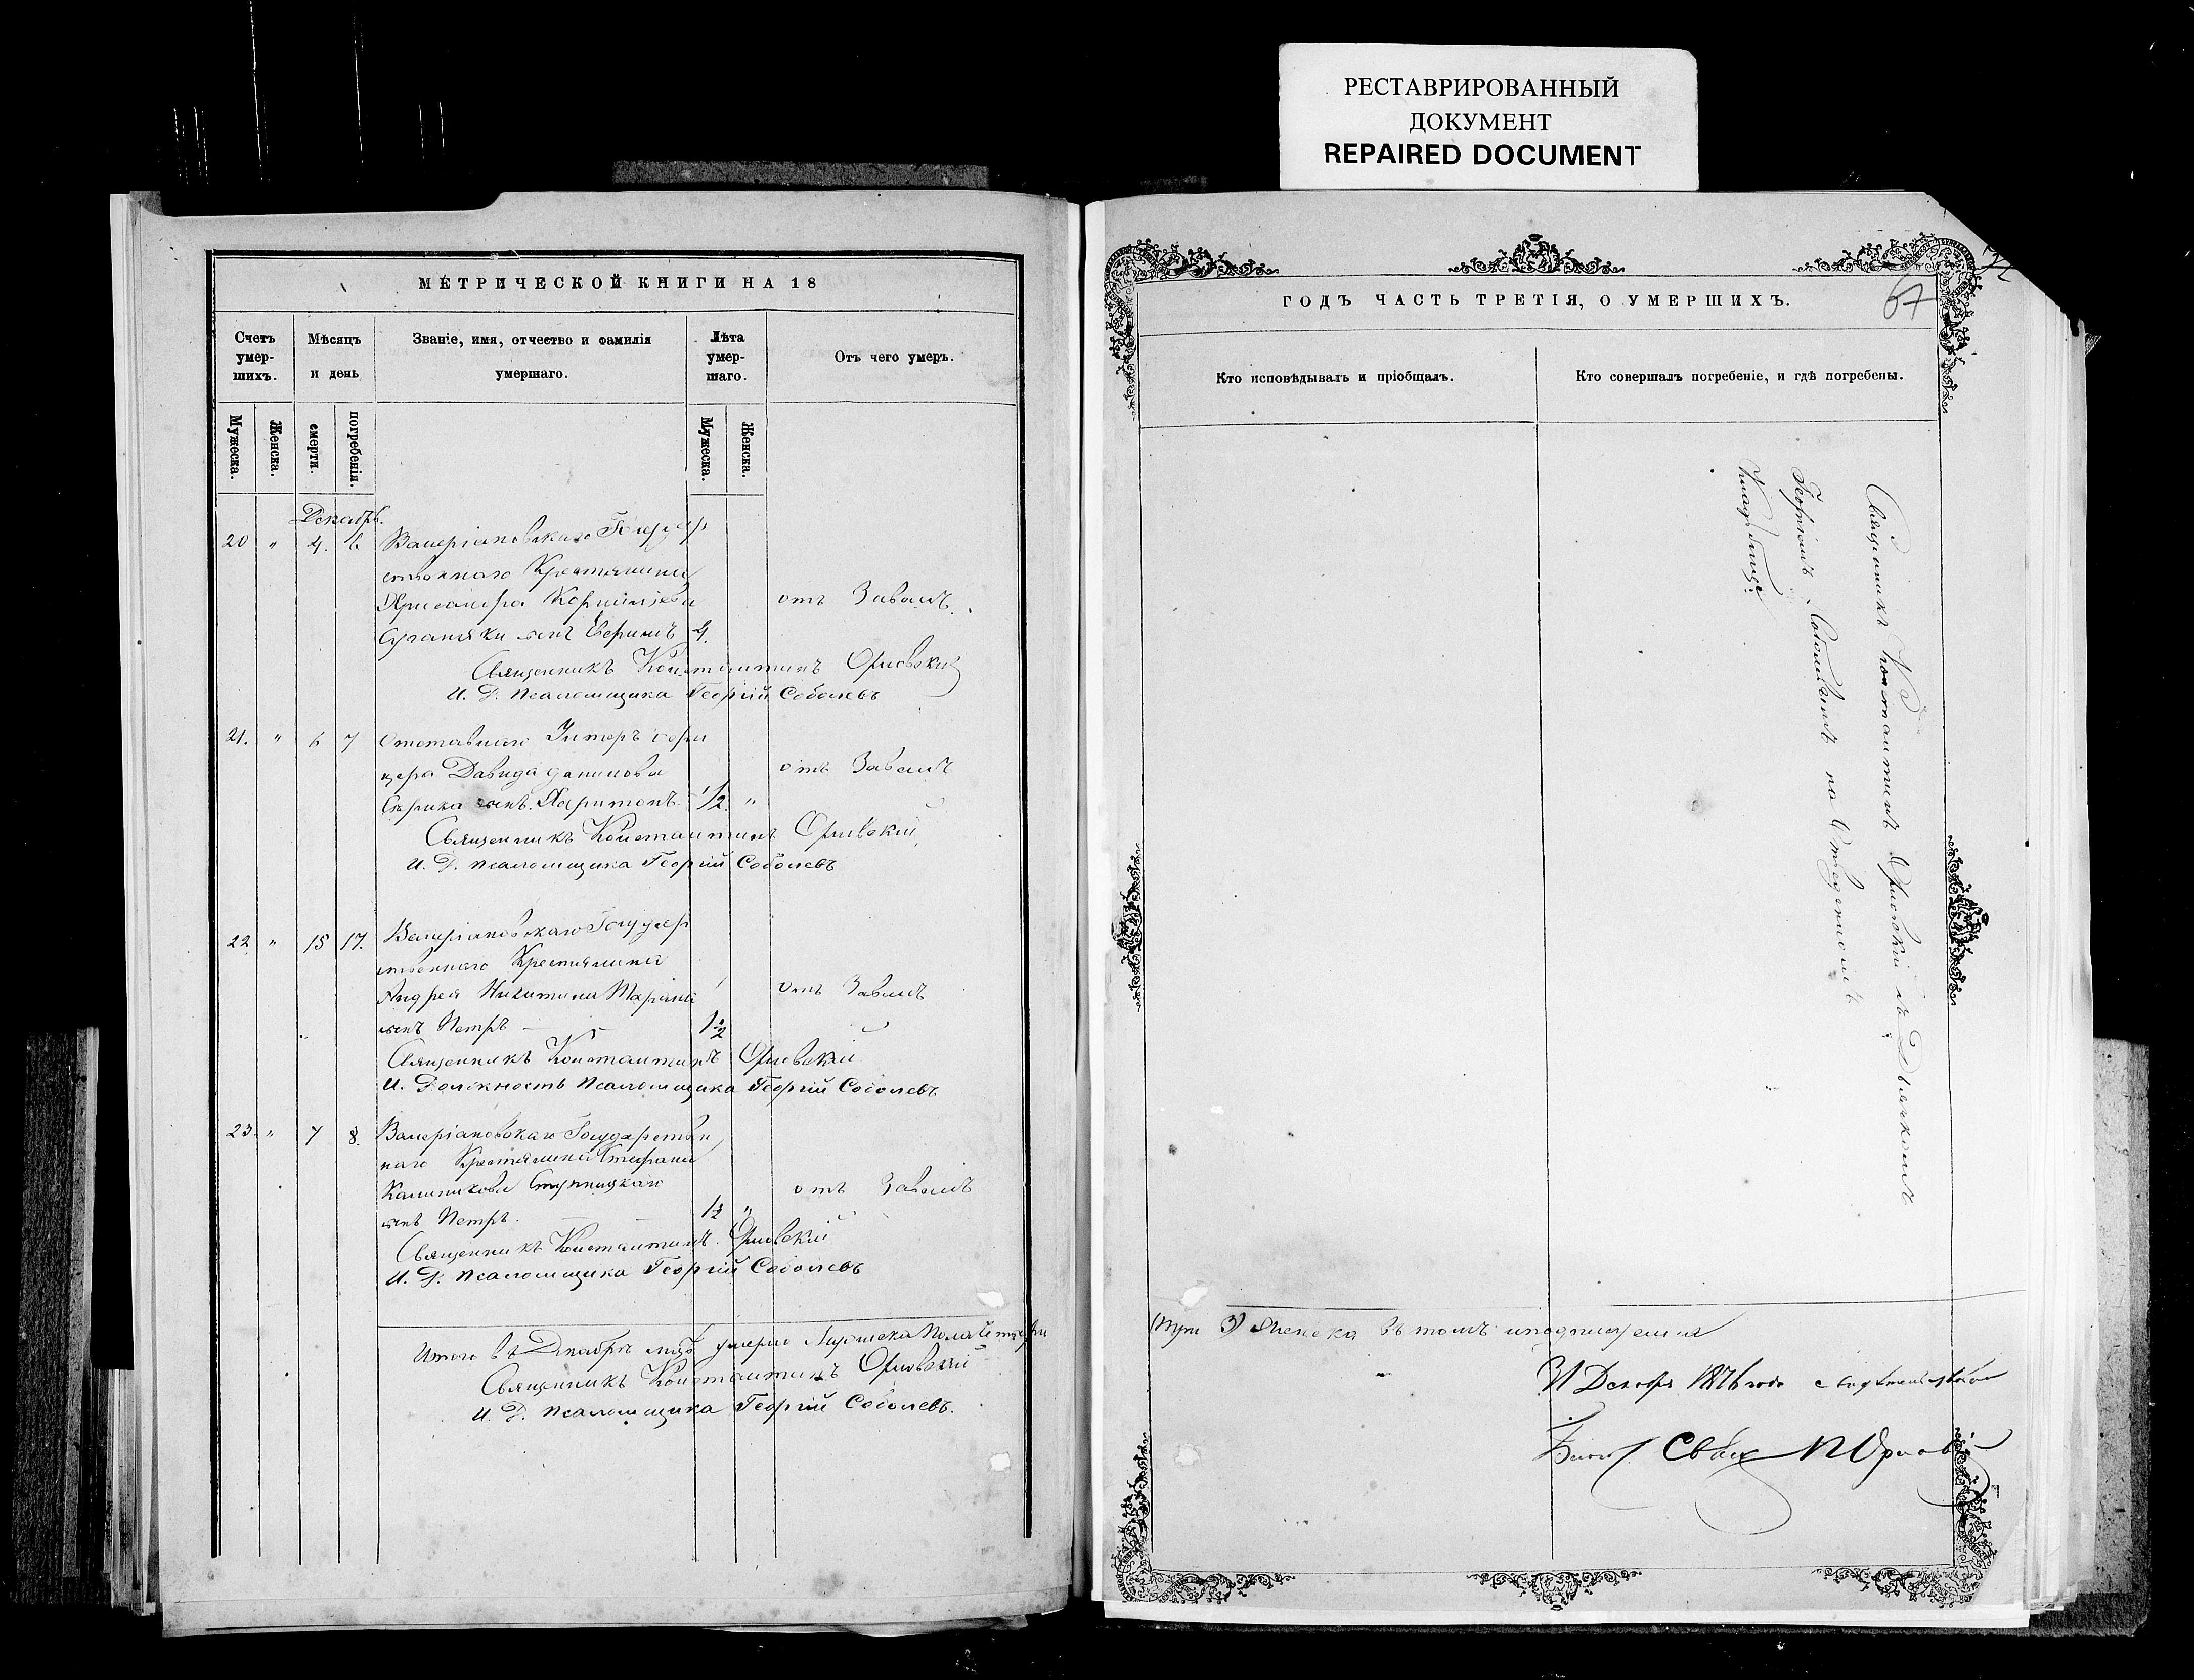 РЕСТАВРИРОВАННЫЙ
ДОКУМЕНТ
REPAIRED DOCUMENT
МЕТРИЧЕСКОЙ КНИГИ НА 18
Счетъ умер-шихъ.
Мѣсяцъ и день
Званіе, имя, отчество и фамилія умершаго.
Лѣта умер-шаго.
Отъ чего умеръ.
Мужеска.
Женска.
смерти.
погребенія.
Мужеска.
Женска.
Декабрь.
20 " 4. 6. Валеріановскаго Государ
ственнаго Крестьянина
Хрисанфа
сынъ 4.
отъ Завалъ.
Священникъ Константинъ Орловскій
И. Д. псаломщика Георгій Соболевъ
21. " 6 7 Отставнаго Унтеръ офи
цера Давида Данилова
сынъ Харитонъ 1/2 "
отъ Завалъ
Священникъ Константинъ Орловскій
И. Д. псаломщика Георгій Соболевъ
22 " 15 17. Валеріановскаго Государ
ственнаго Крестьянина
Андрея Никитина
сынъ Петръ 1 1/2
отъ Завалъ
Священникъ Константинъ Орловскій
И. Должность псаломщика Георгій Соболевъ
23. " 7 8. Валеріановскаго Государствен
наго Крестьянина Стефана
сынъ Петръ. 1 1/2 "
отъ Завалъ
Священникъ Константинъ. Орловскій
И. Д. псаломщика Георгій Соболевъ
Итого въ Декабрѣ умерло Мужеска Пола Четыре
Священникъ Константинъ Орловскій
И. Д. псаломщика Георгій Соболевъ.
67
ГОДЪ ЧАСТЬ ТРЕТІЯ, О УМЕРШИХЪ.
Кто исповѣдывалъ и пріобщалъ.
Кто совершалъ погребеніе, и гдѣ погребены.
Священникъ Константинъ Орловскій съ Дьячкомъ
Георгіемъ Соболевымъ на Отведенномъ
Кладбищѣ
3) Женска въ томъ и подписуемся
31 Декабря 1876 года